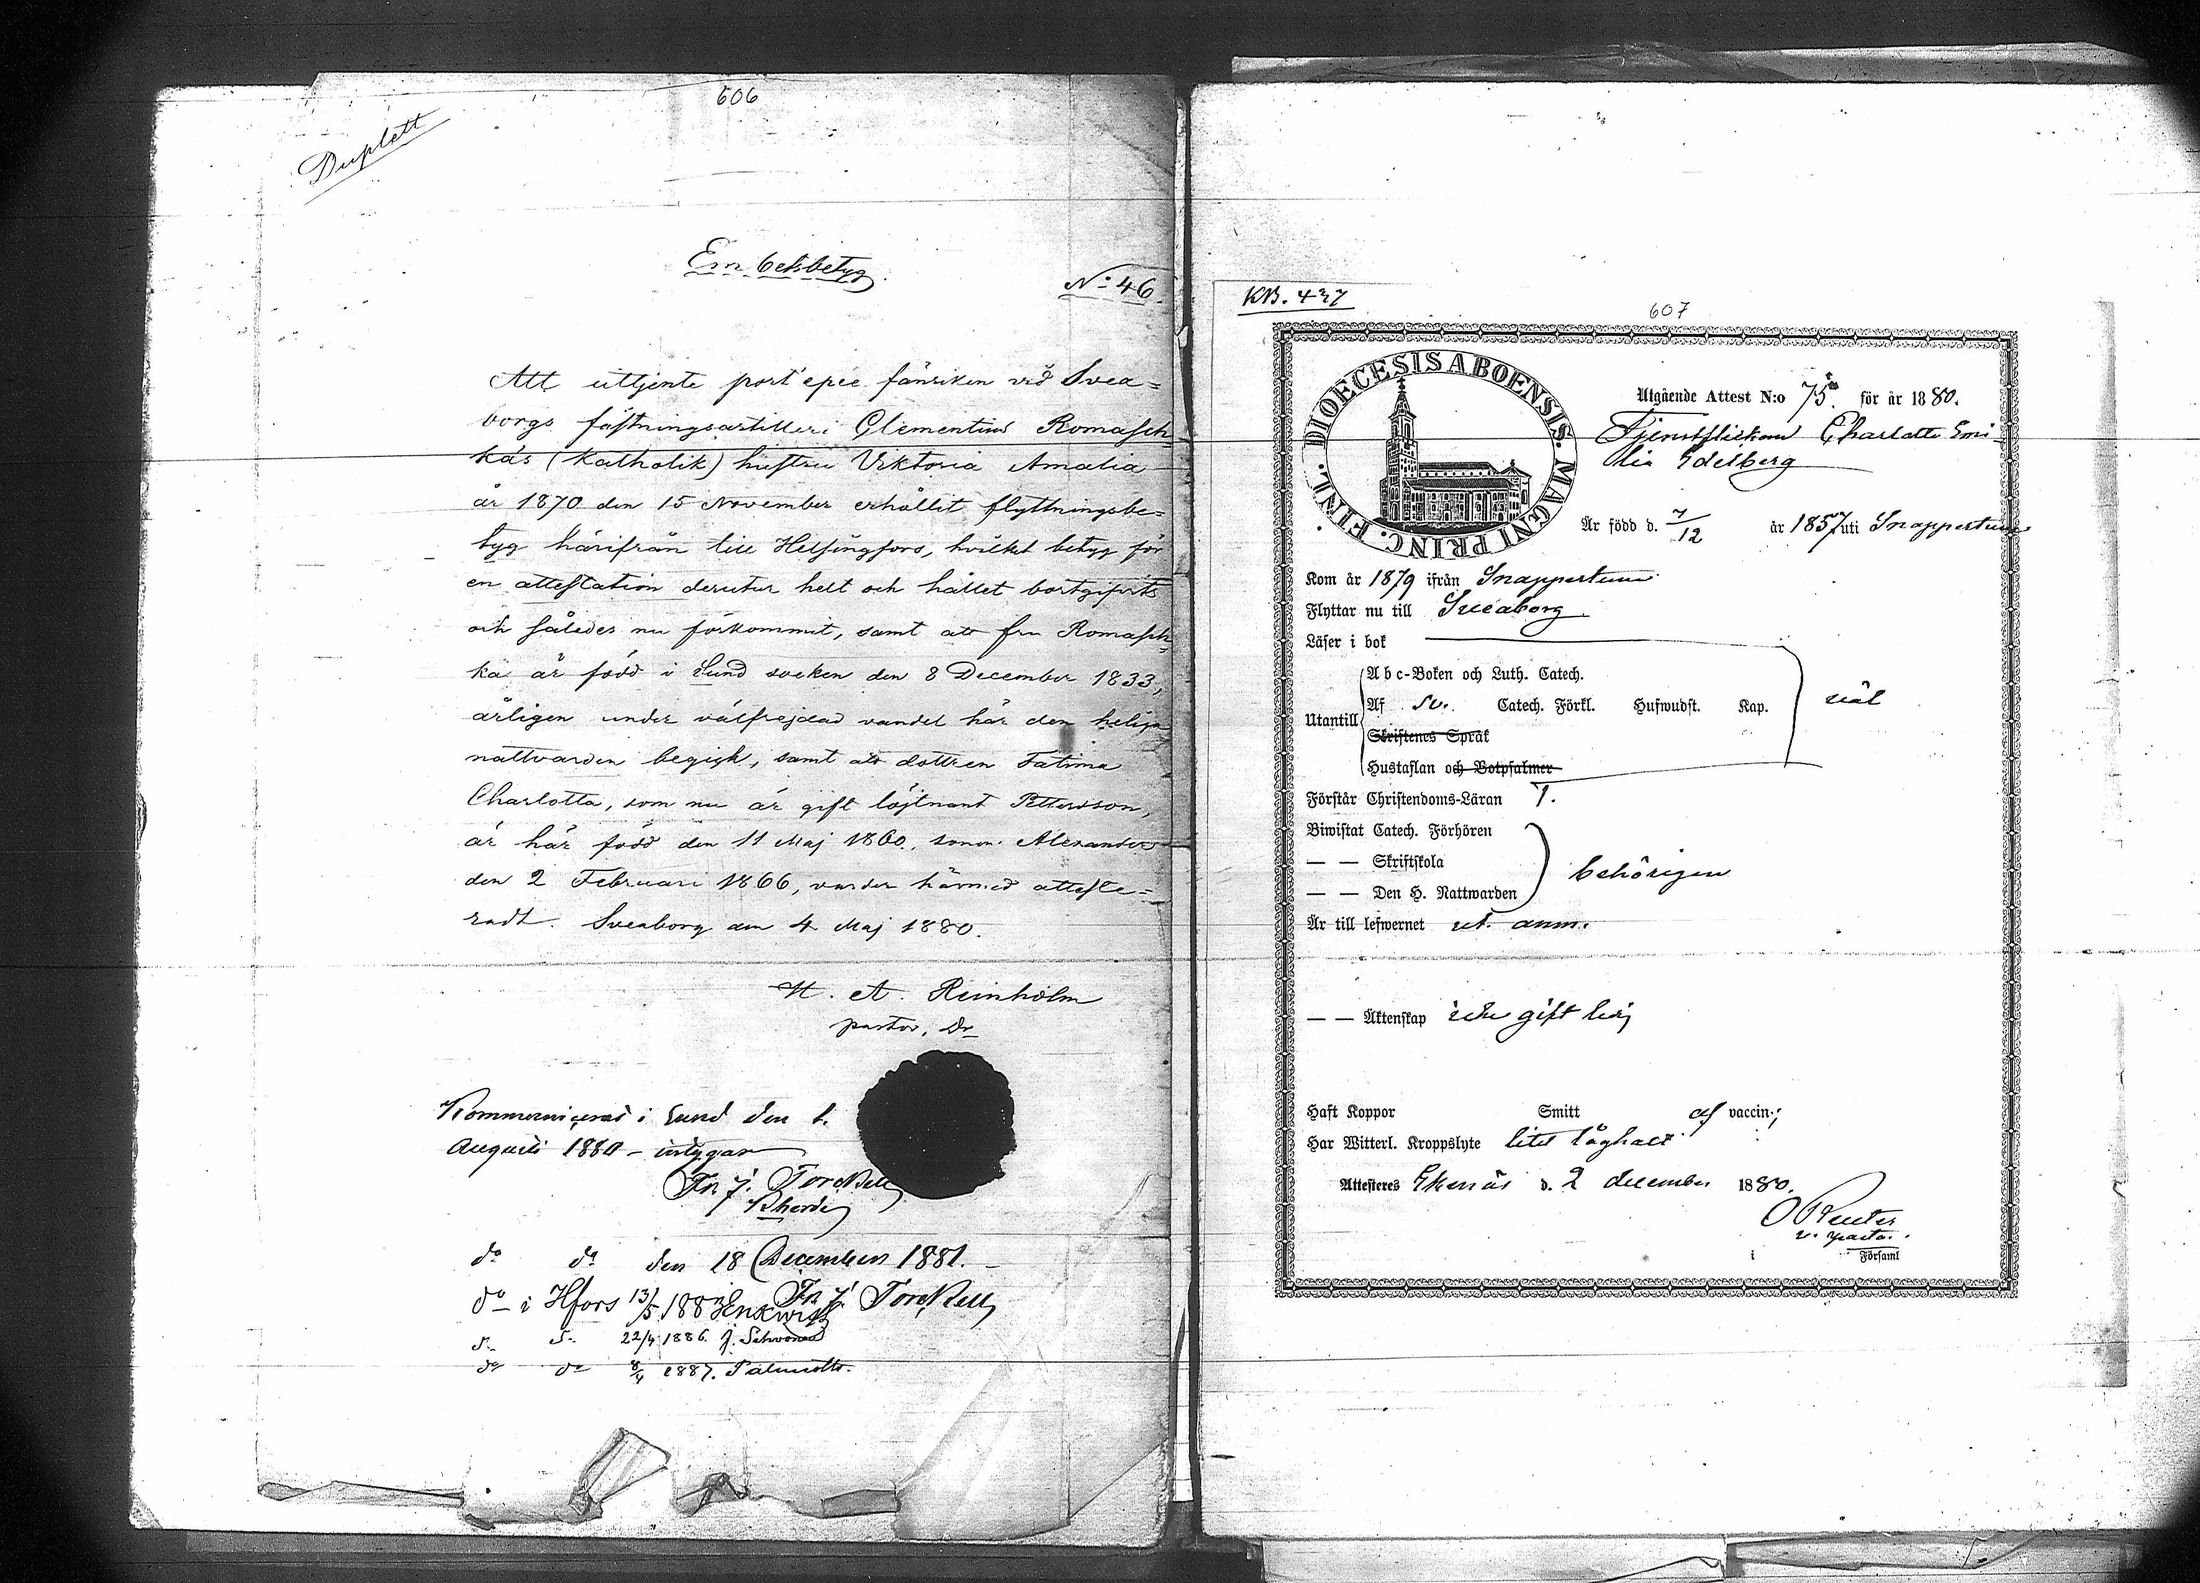 606
Duplett
Embetsbetyg.
No 46.
Att uttjente port'epée fänriken vid Svea=
borgs fästningsartilleri Clementius Romasch
kas (Katholik) hustru Viktoria Amalia
år 1870 den 15 November erhållit flyttningsbe=
tyg härifrån till Helsingfors, hvilket betyg för
en attestation derutur helt och hållet bortgifvits
och således nu förkommit, samt att fru Romasch
ka är född i Sund socken den 8 December 1833,
årligen under välfrejdad vandel här den heliga
nattvarden begick, samt att dottren Fatima
Charlotta, som nu är gift löjtnant Pettersson,
är här född den 11 Maj 1860, sonen Alexander
den 2 Februari 1866, varder härmed atteste=
radt. Sveaborg den 4 Maj 1880.
H. A. Reinholm
pastor, Dr
Kommunicerad i Sund den 1.
Augusti 1880 – intygar
Fr J. Torckell
Kherde
do do den 18 December 1881.
Fr J. Torckell
do i Hfors 13/5 188
do do 22/4 1886. J. Schroned
do do 8/4 1887. Palmroth.
KB. 437
607
DIOECESIS ABOENSIS. MAGNI PRINC. FINL.
Utgående Attest N:o 75. för år 1880.
Tjenstflickan Charlotta Emi
lia Edelberg
Är född d. 7/12 år 1857 uti Snappertuna
Kom år 1879 ifrån Snappertuna
Flyttar nu till Sveaborg
Läser i bok
Utantill
Abc-Boken och Luth. Catech.
Af Sv. Catech. Förkl. Hufwudst. Kap.
väl
Skriftenes Språk
Hustaflan och Botpsalmer
Förstår Christendoms-Läran T.
Biwistat Catech. Förhören
— — Skriftskola
behörigen
— — Den H. Nattwarden
Är till lefwernet ut. anm.
— — Äktenskap icke gift led;
Haft Koppor Smitt af vaccin.;
Har Witterl. Kroppslyte litet låghalt
Attesteres Ekenäs d. 2 december 1880.
O Reuter
v. pastor.
i Församl